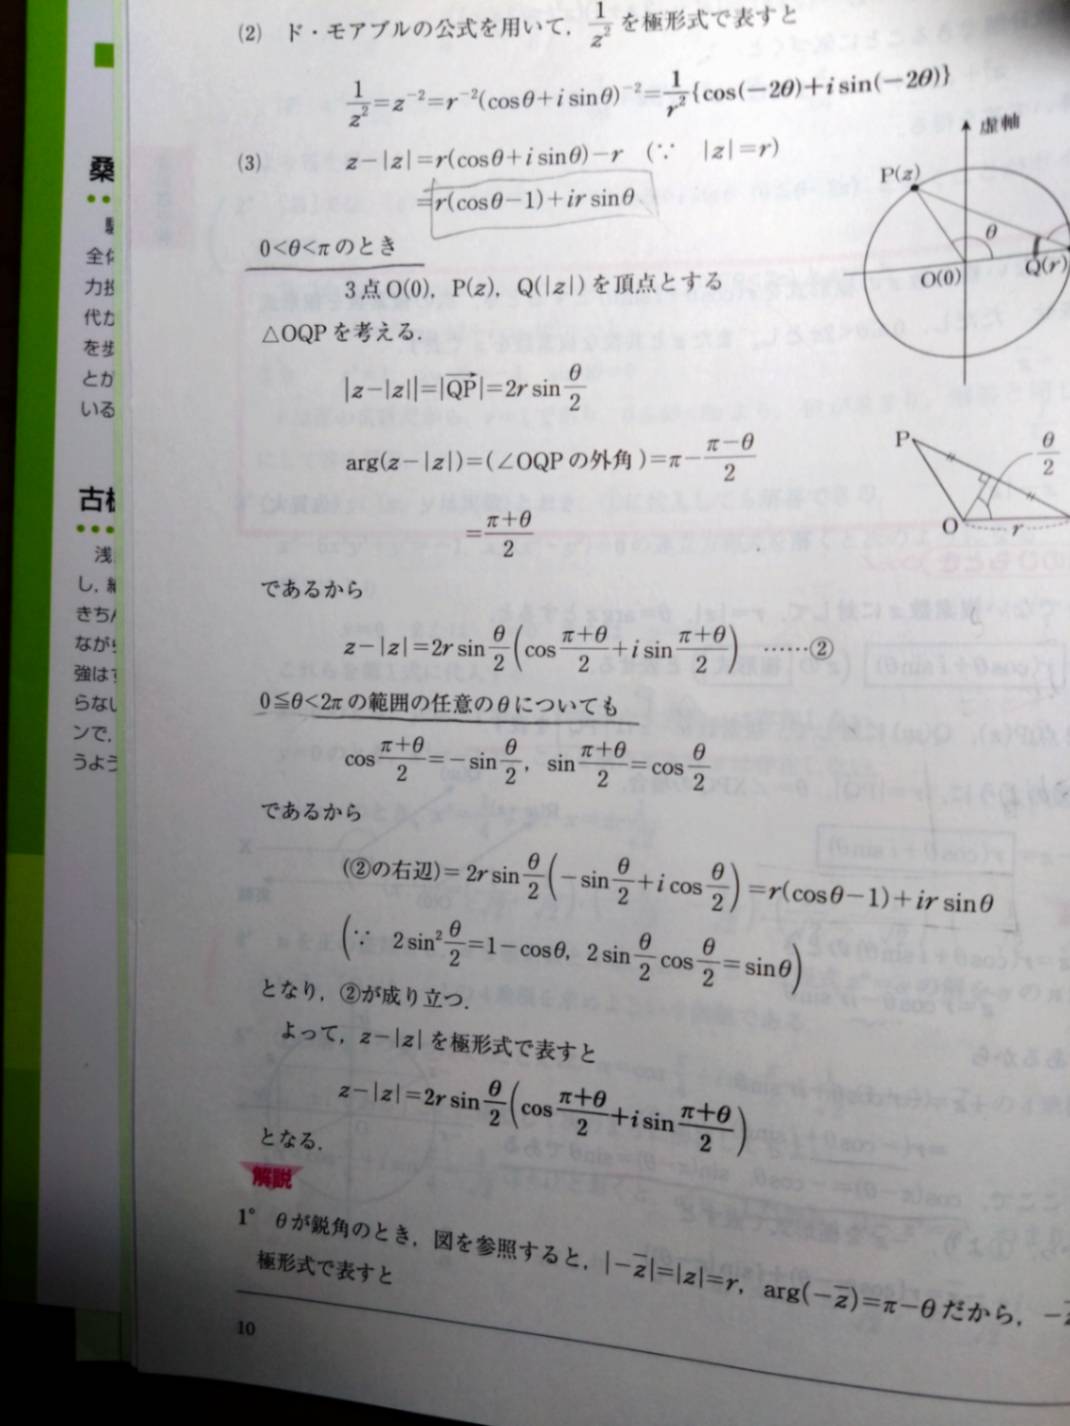 (2) ド・モアブルの公式を用いて，1/z² を極形式で表すと
1/z²=z⁻²=r⁻²(cosθ+i sinθ)⁻²=1/r²{cos(−2θ)+i sin(−2θ)}
(3) z−|z|=r(cosθ+i sinθ)−r (∵ |z|=r)
=r(cosθ−1)+ir sinθ.
0<θ<πのとき
3点O(0)，P(z)，Q(|z|)を頂点とする
△OQPを考える．
|z−|z||=|QP→|=2r sin θ/2
arg(z−|z|)=(∠OQPの外角)=π−(π−θ)/2
=(π+θ)/2
であるから
z−|z|=2r sin θ/2 (cos (π+θ)/2 + i sin (π+θ)/2) ……②
0≦θ<2πの範囲の任意のθについても
cos (π+θ)/2=−sin θ/2，sin (π+θ)/2=cos θ/2
であるから
(②の右辺)=2r sin θ/2 (−sin θ/2 + i cos θ/2)=r(cosθ−1)+ir sinθ
(∵ 2sin² θ/2=1−cosθ，2sin θ/2 cos θ/2=sinθ)
となり，②が成り立つ．
よって，z−|z|を極形式で表すと
z−|z|=2r sin θ/2 (cos (π+θ)/2 + i sin (π+θ)/2)
となる．
解説
1° θが鋭角のとき，図を参照すると，|−z̄|=|z|=r，arg(−z̄)=π−θだから，−z̄
極形式で表すと
10
虚軸
P(z)
θ
O(0)
Q(r)
P
θ/2
O
r
桑
全体
力投
代か
を歩
とが
いる
古
浅
し，
きちん
ながら
強は
らない
ンで，
うよう